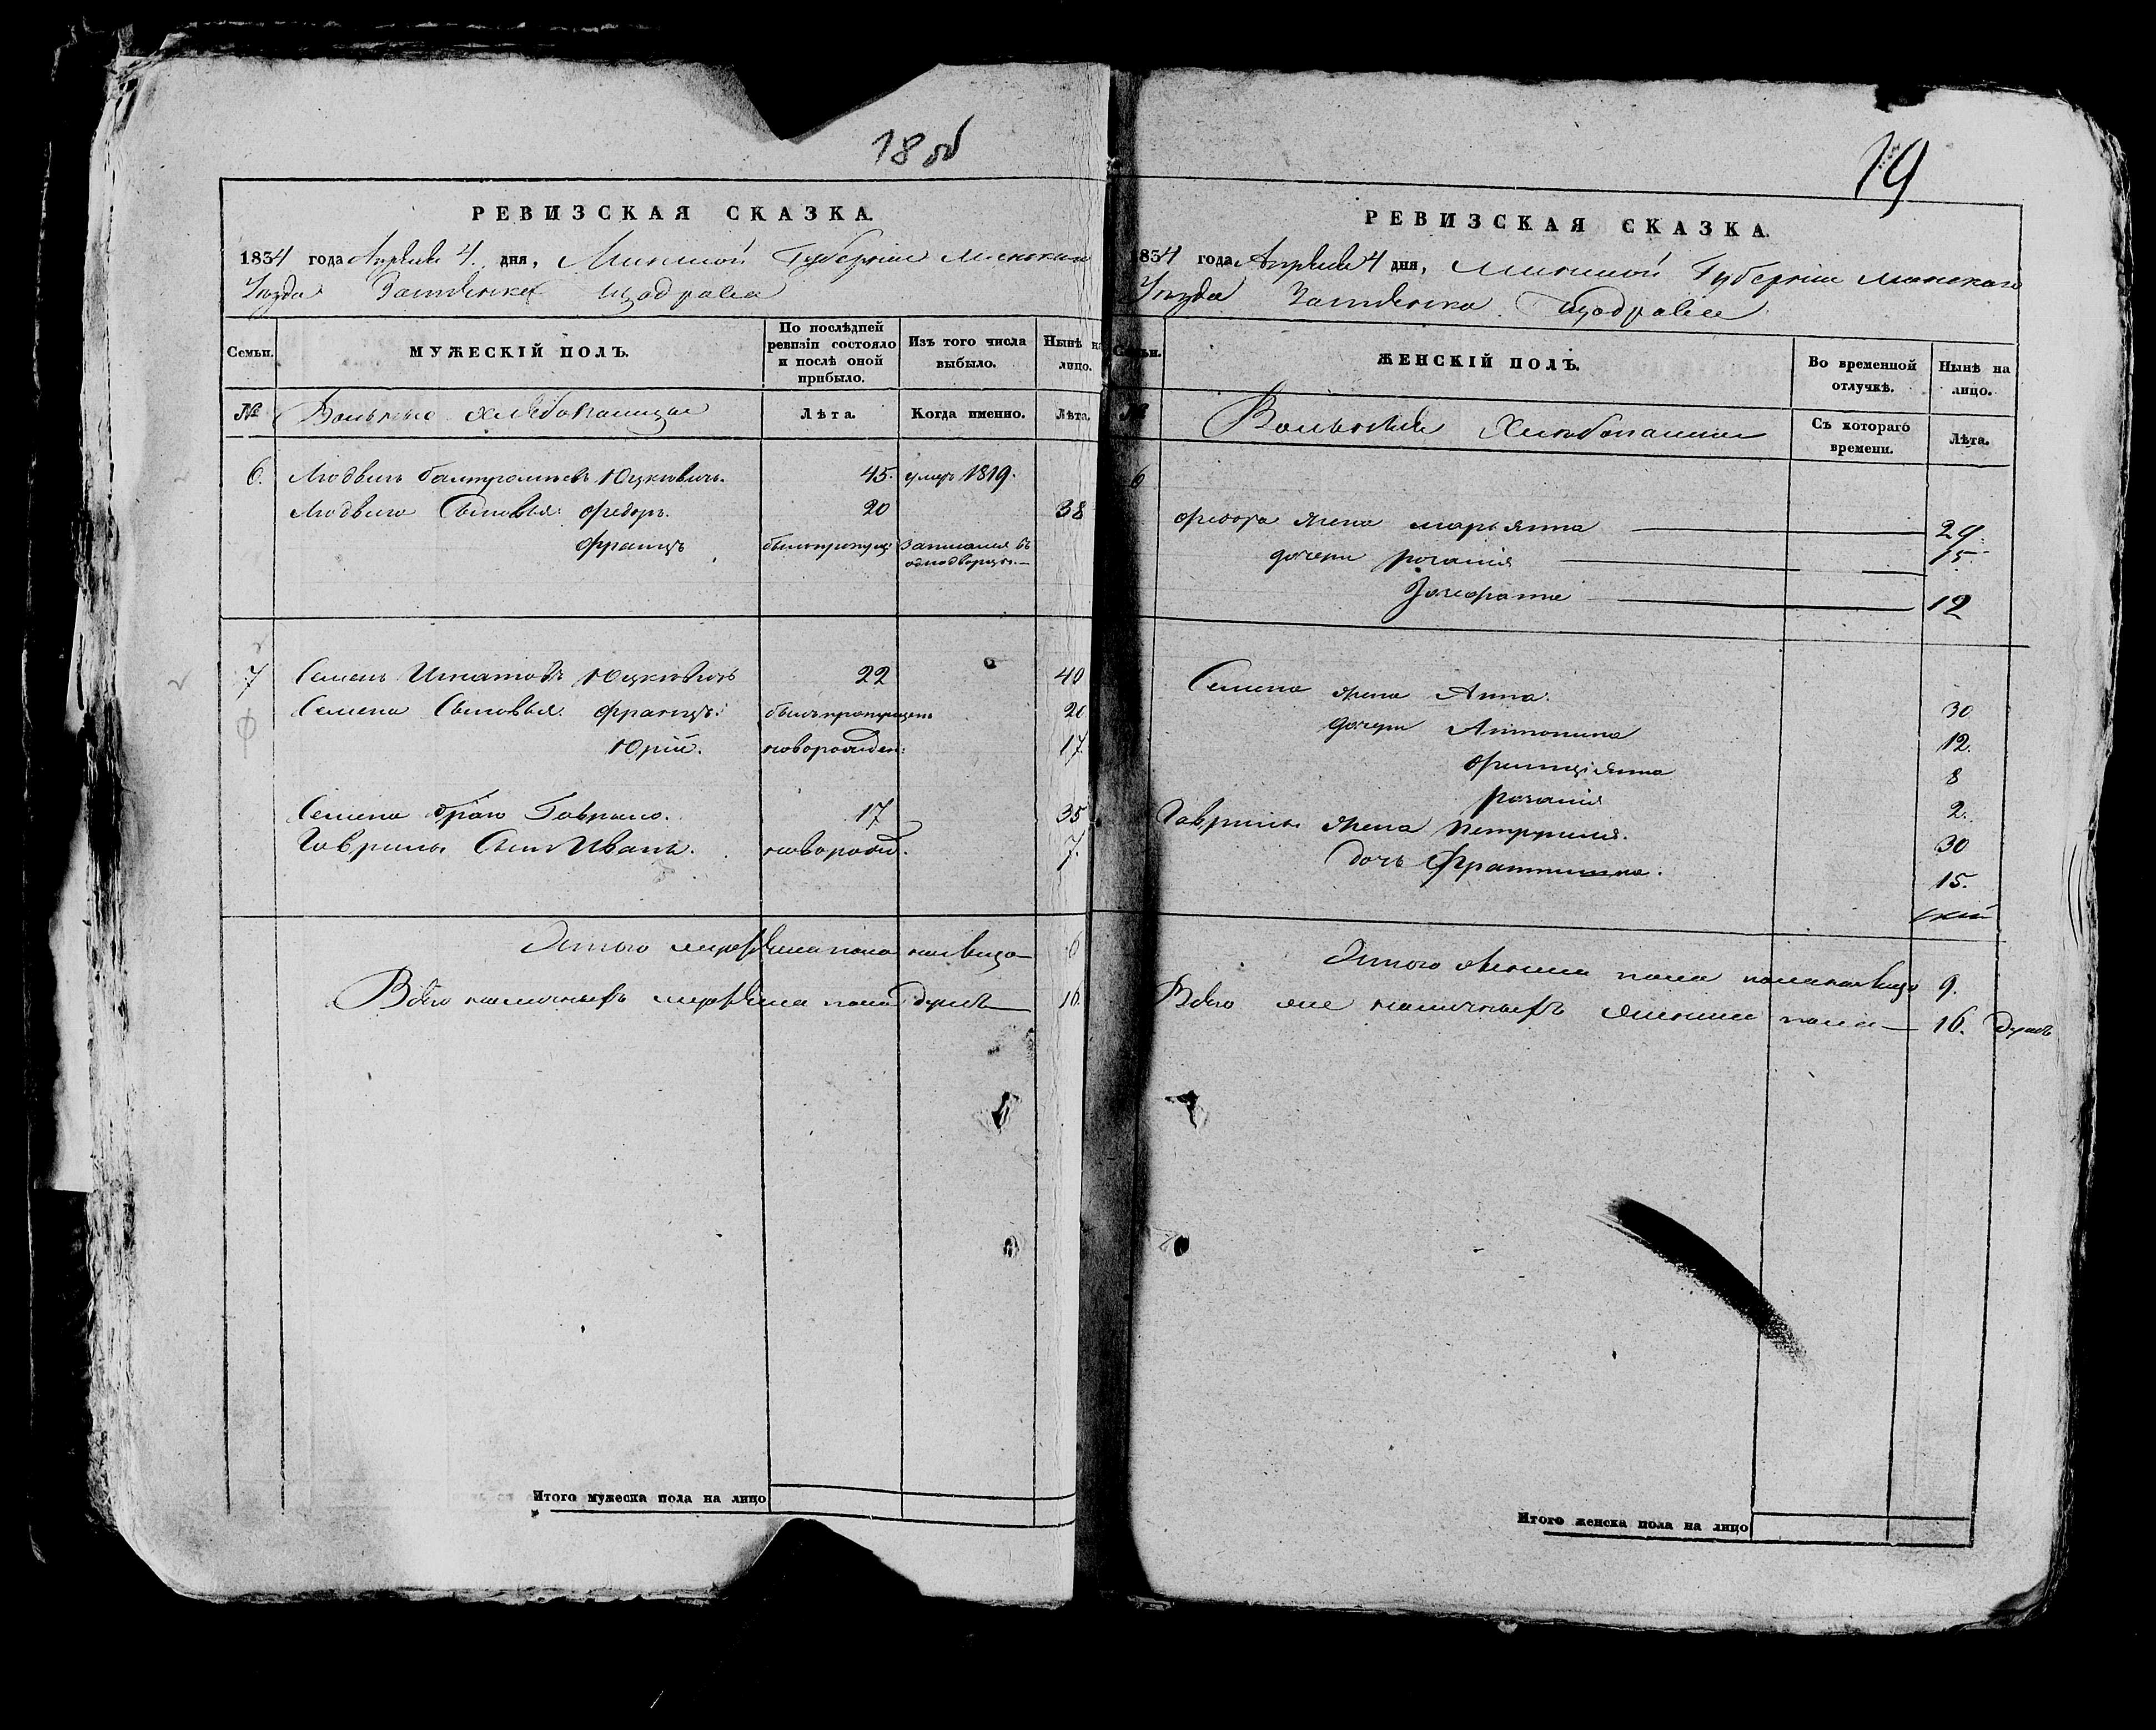 18 об
РЕВИЗСКАЯ СКАЗКА.
1834 года Апреля 4. дня, Минской Губерніи Минскаго
Уезда Застѣнка Щодравля
Семьи.
МУЖЕСКІЙ ПОЛЪ.
По послѣдней ревизіи состояло и послѣ оной прибыло.
Изъ того числа выбыло.
Нынѣ на лицо.
№
Вольные хлебопашцы
Лѣта.
Когда именно.
Лѣта.
6. Людвигъ Балтромѣевъ Юцкевичъ. 45. умеръ 1819.
Людвига Сыновья: Федоръ. 20 38
Францъ былъ пропущ: Записанъ въ
однодворцы.—
7 Семенъ Игнатовъ Юцкевичъ 22 40
Семена Сыновья: Францъ: былъ пропущенъ 20
Юрій. новорожден: 17.
Семена братъ Гаврыло. 17 35
Гаврылы Сынъ Иванъ. новорожд. 7.
Итого мужеска пола на лицо 6
Всѣго наличныхъ мужеска пола душъ — 16.
Итого мужеска пола на лицо
19
РЕВИЗСКАЯ СКАЗКА.
1834 года Апреля 4 дня, Минской Губерніи Минскаго
Уезда Застѣнка Щодравля
Семьи.
ЖЕНСКІЙ ПОЛЪ.
Во временной отлучкѣ.
Нынѣ на лицо.
№
Вольныя Хлебопашцы
Съ котораго времени.
Лѣта.
6
Федора жена Марьянна — 29.
дочери Розалія — 15.
12
Семена жена Анна. 30
дочери Антонина 12.
8
Розалія 2.
Гаврилы жена Петрунеля. 30
дочь 15.
Итого женска пола на лицо 9.
Всѣго же наличныхъ женска пола — 16. душъ
Итого женска пола на лицо